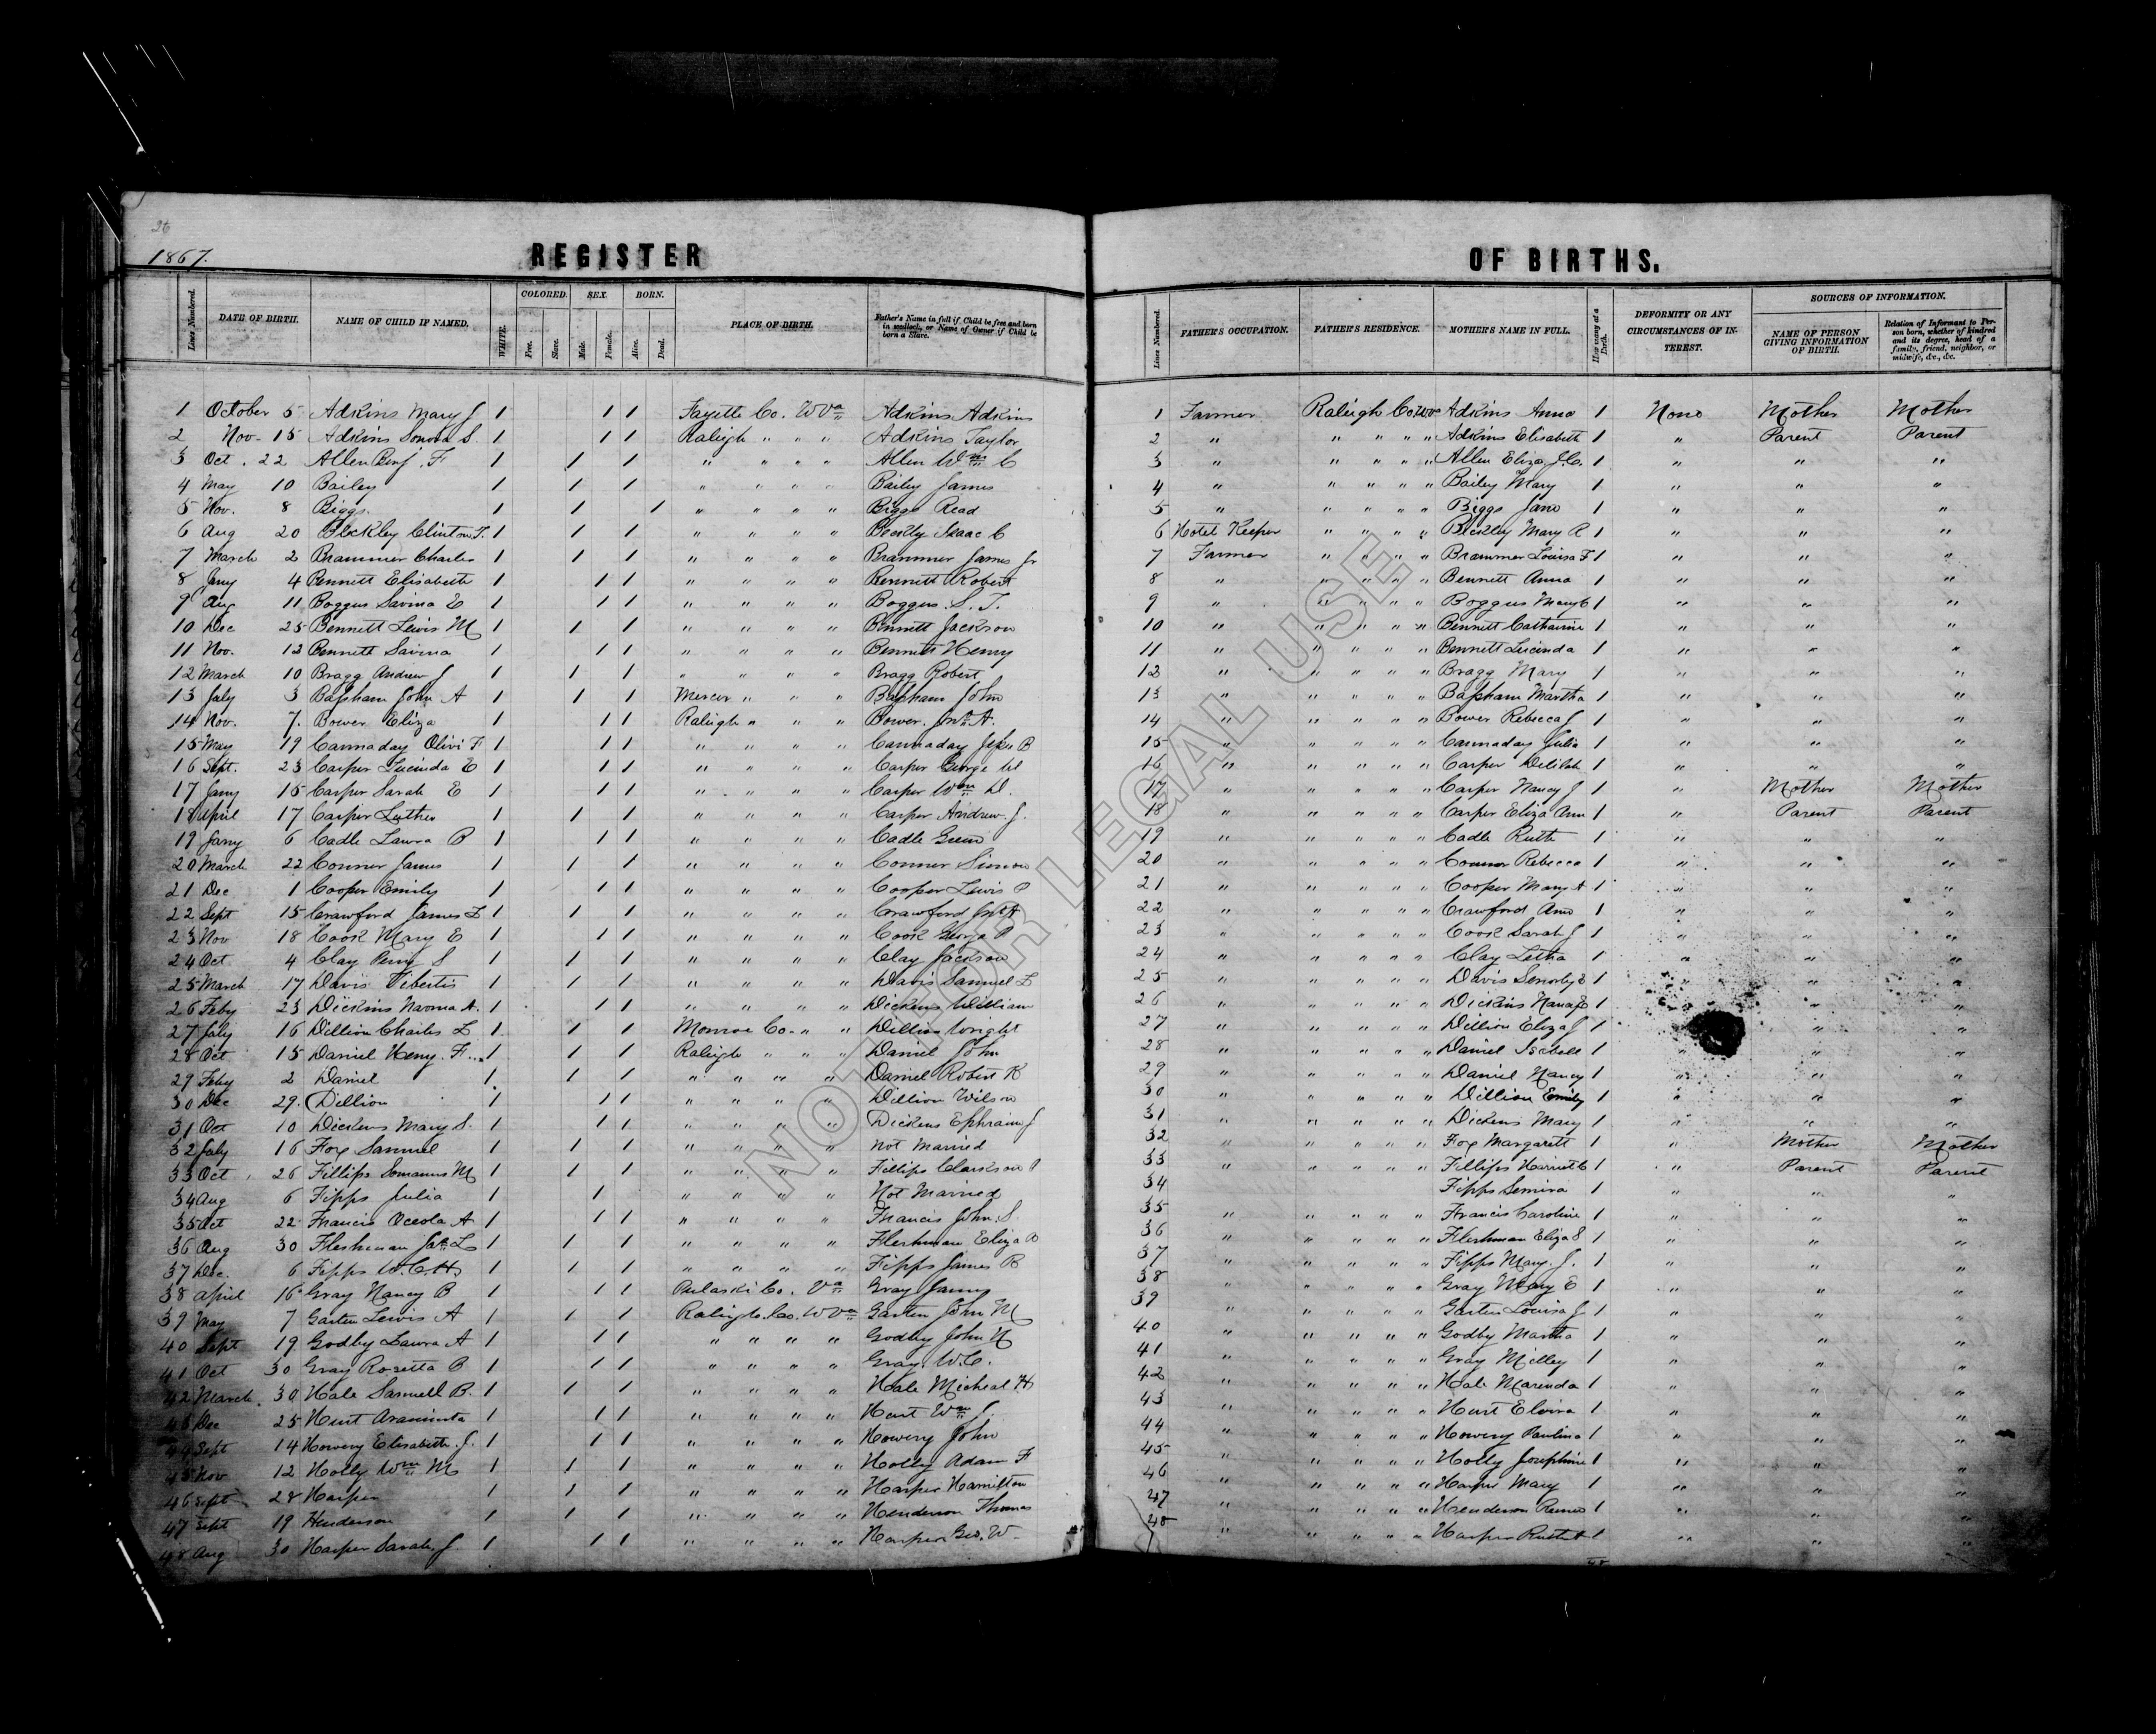 26
1867.
REGISTER OF BIRTHS.
Lines Numbered. DATE OF BIRTH. NAME OF CHILD IF NAMED. WHITE. COLORED. Free. Slave. SEX. Male. Female. BORN. Alive. Dead. PLACE OF BIRTH. Father's Name in full if Child be free and born in wedlock, or Name of Owner if Child be born a Slave.
Lines Numbered. FATHER'S OCCUPATION. FATHER'S RESIDENCE. MOTHER'S NAME IN FULL. How many at a Birth. DEFORMITY OR ANY CIRCUMSTANCES OF INTEREST. SOURCES OF INFORMATION. NAME OF PERSON GIVING INFORMATION OF BIRTH. Relation of Informant to Person born, whether of kindred and its degree, head of a family, friend, neighbor, or midwife, &c., &c.
1 October 5 Adkins Mary J 1 1 1 Fayette Co. W Va Adkins Adkins
2 Nov. 15 Adkins Sonora S. 1 1 1 Raleigh " " " Adkins Taylor
3 Oct. 22 Allen Benj. F 1 1 1 " " " " Allen Wm C
4 May 10 Bailey 1 1 1 " " " " Bailey James
5 Nov. 8 Biggs 1 1 1 " " " " Biggs Read
6 Aug 20 Beckley Clinton T. 1 1 1 " " " " Beckley Isaac C
7 March 2 Brammer Charles 1 1 1 " " " " Brammer James Jr
8 Jany 4 Bennett Elisabeth 1 1 1 " " " " Bennett Robert
9 Aug 11 Boggus Savina E 1 1 1 " " " " Boggus S. T.
10 Dec 25 Bennett Lewis M 1 1 1 " " " " Bennett Jackson
11 Nov. 12 Bennett Savina 1 1 1 " " " " Bennett Henry
12 March 10 Bragg Andrew J 1 1 1 " " " " Bragg Robert
13 July 3 Basham John A 1 1 1 Mercer " " " Basham John
14 Nov. 7. Bower Eliza 1 1 1 Raleigh " " " Bower Jno A.
15 May 19 Cannaday Olivi F 1 1 1 " " " " Cannaday B
16 Sept. 23 Carper Lucinda E 1 1 1 " " " " Carper George W
17 Jany 15 Carper Sarah E 1 1 1 " " " " Carper Wm D.
18 April 17 Carper Luther 1 1 1 " " " " Carper Andrew J.
19 Jany 6 Cadle Laura B 1 1 1 " " " " Cadle Green
20 March 22 Conner James 1 1 1 " " " " Conner Simon
21 Dec 1 Cooper Emily 1 1 1 " " " " Cooper Lewis P
22 Sept 15 Crawford James L 1 1 1 " " " " Crawford Jno A
23 Nov 18 Cook Mary E 1 1 1 " " " " Cook George P
24 Oct 4 Clay Perry S 1 1 1 " " " " Clay Jackson
25 March 17 Davis Tibertis 1 1 1 " " " " Davis Samuel L
26 Feby 23 Dickins Naoma A. 1 1 1 " " " " Dickens William
27 July 16 Dillion Charles L 1 1 1 Monroe Co. " " Dillion Wright
28 Oct 15 Daniel Henry F. 1 1 1 Raleigh " " " Daniel John
29 Feby 2 Daniel 1 1 1 " " " " Daniel Robert K
30 Dec 29. Dillion 1 1 1 " " " " Dillion Wilson
31 Oct 10 Dickens Mary S. 1 1 1 " " " " Dickens Ephraim J
32 July 16 Fox Samuel 1 1 1 " " " " not married
33 Oct 26 Fillips M 1 1 1 " " " " Fillips Clarkson P
34 Aug 6 Fipps Julia 1 1 " " " " Not Married
35 Oct 22 Francis Oceola A 1 1 1 " " " " Francis John S.
36 Aug 30 Fleshman Jas L 1 1 1 " " " " Fleshman Eliza B
37 Dec. 6 Fipps W. C. H 1 1 1 " " " " Fipps James B
38 April 16 Gray Nancy B 1 1 1 Pulaski Co. Va Gray
39 May 7 Garten Lewis A 1 1 1 Raleigh Co. W Va Garten John M
40 Sept 19 Godby Laura A 1 1 1 " " " " Godby John N
41 Oct 30 Gray Rozetta B 1 1 1 " " " " Gray W. C.
42 March 30 Hale Samuell B. 1 1 1 " " " " Hale Micheal H
43 Dec 25 Hurt Araminta 1 1 1 " " " " Hurt Wm J.
44 Sept 14 Howery Elisabeth J. 1 1 1 " " " " Howery John
45 Nov 12 Holly Wm M 1 1 1 " " " " Holly Adam F
46 Sept 28 Harper 1 1 1 " " " " Harper Hamilton
47 Sept 19 Henderson 1 1 1 " " " " Henderson Thomas
48 Aug 30 Harper Sarah J 1 1 1 " " " " Harper Geo. W.
1 Farmer Raleigh Co. W Va Adkins Anna 1 None Mother Mother
2 " " " " " Adkins Elisabeth 1 " Parent Parent
3 " " " " " Allen Eliza J. C. 1 " " "
4 " " " " " Bailey Mary 1 " " "
5 " " " " " Biggs Jane 1 " " "
6 Hotel Keeper " " " " Beckley Mary R 1 " " "
7 Farmer " " " " Brammer Louisa F 1 " " "
8 " " " " " Bennett Anna 1 " " "
9 " " " " " Boggus Mary C 1 " " "
10 " " " " " Bennett Catharine 1 " " "
11 " " " " " Bennett Lucinda 1 " " "
12 " " " " " Bragg Mary 1 " " "
13 " " " " " Basham Martha 1 " " "
14 " " " " " Bower Rebecca J 1 " " "
15 " " " " " Cannaday Julia 1 " " "
16 " " " " " Carper Delilah 1 " " "
17 " " " " " Carper Nancy J 1 " Mother Mother
18 " " " " " Carper Eliza Ann 1 " Parent Parent
19 " " " " " Cadle Ruth 1 " " "
20 " " " " " Conner Rebecca 1 " " "
21 " " " " " Cooper Mary A 1 " " "
22 " " " " " Crawford Ann 1 " " "
23 " " " " " Cook Sarah J 1 " " "
24 " " " " " Clay Letha 1 " " "
25 " " " " " Davis E 1 " " "
26 " " " " " Dickins E 1 " " "
27 " " " " " Dillion Eliza J 1 " "
28 " " " " " Daniel Isabell 1 " " "
29 " " " " " Daniel Nancy 1 " " "
30 " " " " " Dillion Emily 1 " " "
31 " " " " " Dickens Mary 1 " " "
32 " " " " " Fox Margarett 1 " Mother Mother
33 " " " " " Fillips Harriet C 1 " Parent Parent
34 Fipps Semira 1 " " "
35 " " " " " Francis Caroline 1 " " "
36 " " " " " Fleshman Eliza S 1 " " "
37 " " " " " Fipps Mary J. 1 " " "
38 " " " " " Gray Mary E 1 " " "
39 " " " " " Garten Louisa J 1 " " "
40 " " " " " Godby Martha 1 " " "
41 " " " " " Gray Milley 1 " " "
42 " " " " " Hale Marinda 1 " " "
43 " " " " " Hurt Elvira 1 " " "
44 " " " " " Howery Paulina 1 " " "
45 " " " " " Holly Josephine 1 " " "
46 " " " " " Harper Mary 1 " " "
47 " " " " " Henderson 1 " " "
48 " " " " " Harper 1 " " "
NOT FOR LEGAL USE